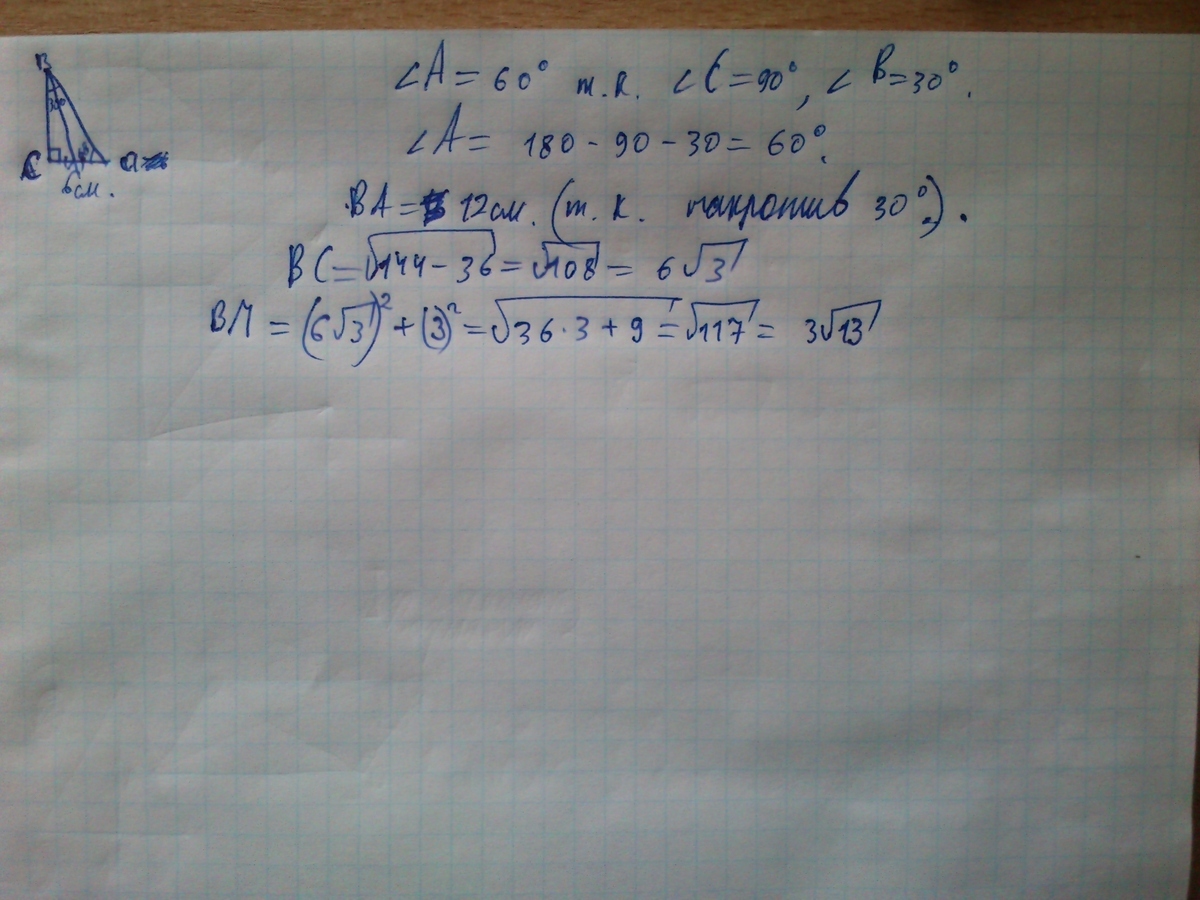 B
30°
C a
6см.
∠A = 60° т.к. ∠C = 90°, ∠B = 30°.
∠A = 180 - 90 - 30 = 60°.
BA = 12см. (т.к. накротив 30°.).
BC = √144 - 36 = √108 = 6√3
BM = (6√3)² + (3)² = √36·3 + 9 = √117 = 3√13